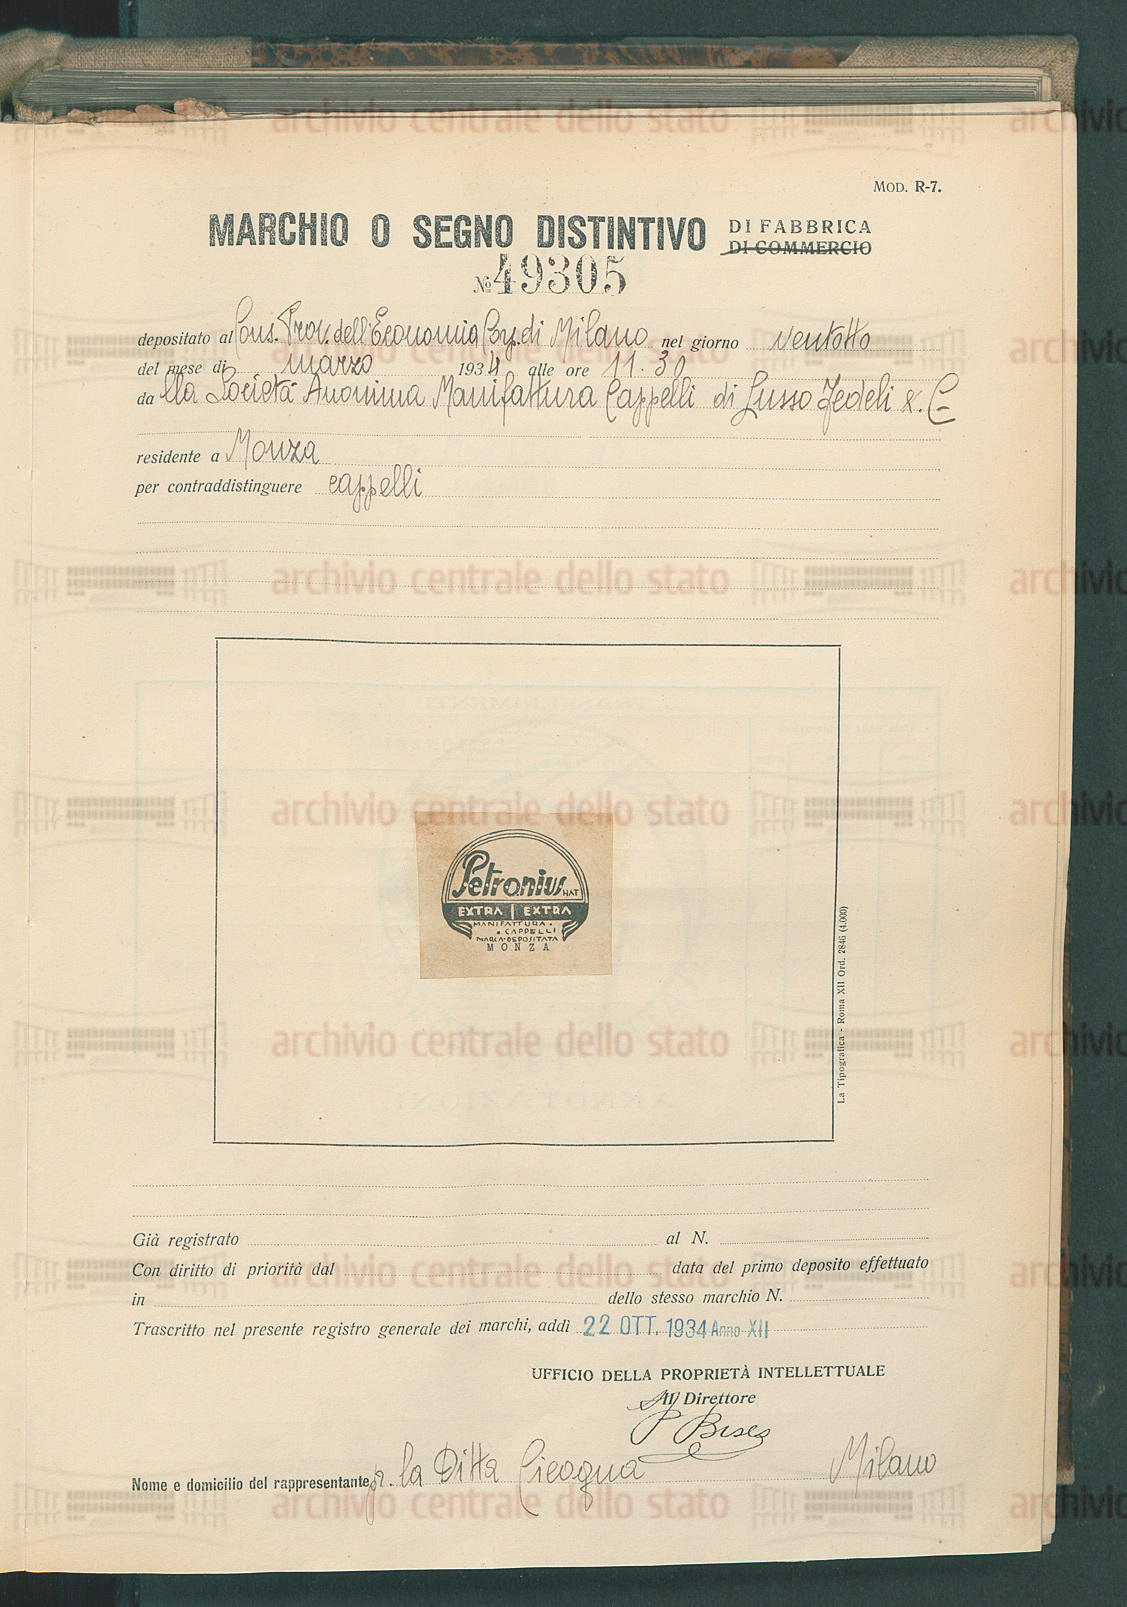 MOD. R-7.
MARCHIO O SEGNO DISTINTIVO DI FABBRICA
DI COMMERCIO
№ 49305
depositato al Cons. Prov. dell'Economia Corp. di Milano nel giorno ventotto
del mese di marzo 1934 alle ore 11.30
da lla Società Anonima Manifattura Cappelli di Lusso Fedeli & C
residente a Monza
per contraddistinguere cappelli
Petronius HAT
EXTRA EXTRA
MANIFATTURA
CAPPELLI
MARCA DEPOSITATA
MONZA
La Tipografica - Roma XII Ord. 2846 (4.000)
Già registrato al N.
Con diritto di priorità dal data del primo deposito effettuato
in dello stesso marchio N.
Trascritto nel presente registro generale dei marchi, addì 22 OTT. 1934 Anno XII
UFFICIO DELLA PROPRIETÀ INTELLETTUALE
Il Direttore
Nome e domicilio del rappresentante pr. la Ditta Cicogna Milano
archivio centrale dello stato